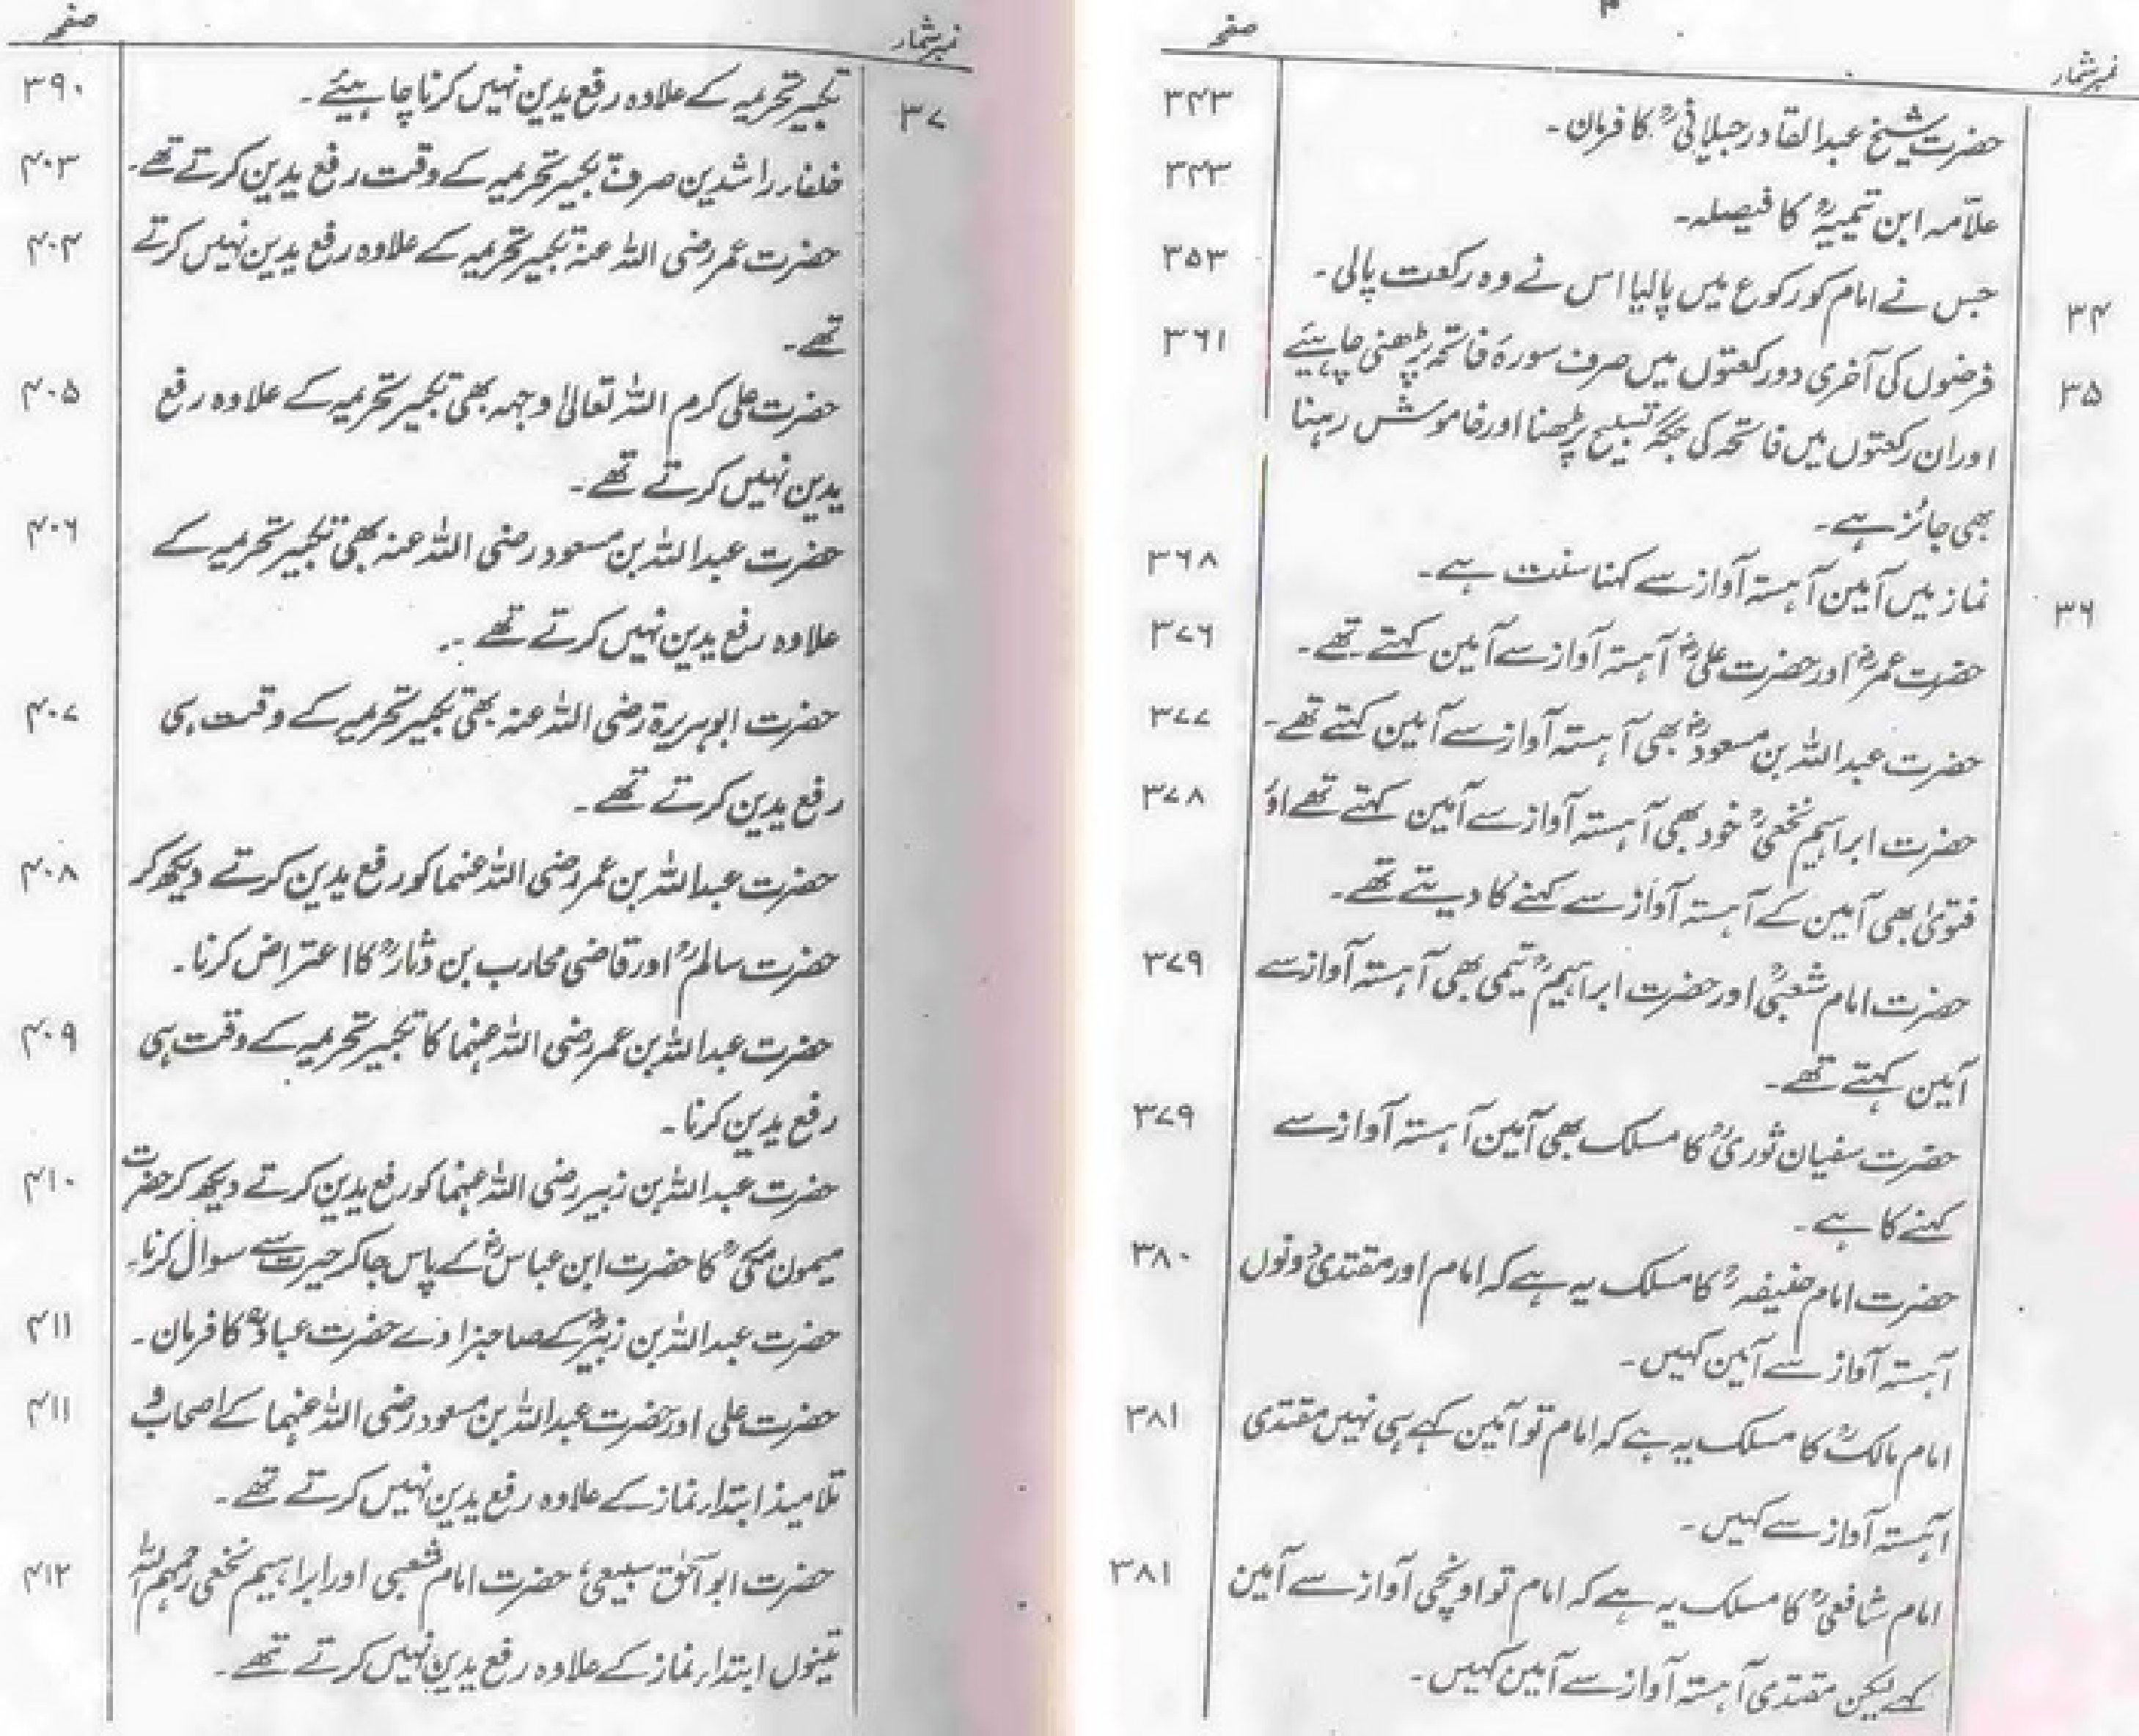 ۳
نمبر شمار صفحہ
حضرت شیخ عبدالقادر جیلانیؒ کا فرمان۔ ۳۴۳
علامہ ابن تیمیہؒ کا فیصلہ۔ ۳۴۳
۳۴ جس نے امام کو رکوع میں پا لیا اس نے وہ رکعت پالی۔ ۳۵۳
۳۵ فرضوں کی آخری دو رکعتوں میں صرف سورۂ فاتحہ پڑھنی چاہیئے ۳۶۱
اور ان رکعتوں میں فاتحہ کی جگہ تسبیح پڑھنا اور خاموش رہنا
بھی جائز ہے۔
۳۶ نماز میں آمین آہستہ آواز سے کہنا سنت ہے۔ ۳۶۸
حضرت عمرؓ اور حضرت علیؓ آہستہ آواز سے آمین کہتے تھے۔ ۳۷۶
حضرت عبداللہ بن مسعودؓ بھی آہستہ آواز سے آمین کہتے تھے۔ ۳۷۷
حضرت ابراہیم نخعیؒ خود بھی آہستہ آواز سے آمین کہتے تھے اور ۳۷۸
فتویٰ بھی آمین کے آہستہ آواز سے کہنے کا دیتے تھے۔
حضرت امام شعبیؒ اور حضرت ابراہیمؒ تیمی بھی آہستہ آواز سے ۳۷۹
آمین کہتے تھے۔
حضرت سفیان ثوریؒ کا مسلک بھی آمین آہستہ آواز سے ۳۷۹
کہنے کا ہے۔
حضرت امام حنیفہؒ کا مسلک یہ ہے کہ امام اور مقتدی دونوں ۳۸۰
آہستہ آواز سے آمین کہیں۔
امام مالکؒ کا مسلک یہ ہے کہ امام تو آمین کہے ہی نہیں مقتدی ۳۸۱
آہستہ آواز سے کہیں۔
امام شافعیؒ کا مسلک یہ ہے کہ امام تو اونچی آواز سے آمین ۳۸۱
کہے لیکن مقتدی آہستہ آواز سے آمین کہیں۔
نمبر شمار صفحہ
۳۷ تکبیر تحریمہ کے علاوہ رفع یدین نہیں کرنا چاہیئے۔ ۳۹۰
خلفاء راشدین صرف تکبیر تحریمہ کے وقت رفع یدین کرتے تھے۔ ۴۰۳
حضرت عمر رضی اللہ عنہ تکبیر تحریمہ کے علاوہ رفع یدین نہیں کرتے ۴۰۴
تھے۔
حضرت علی کرم اللہ تعالیٰ وجہہ بھی تکبیر تحریمہ کے علاوہ رفع ۴۰۵
یدین نہیں کرتے تھے۔
حضرت عبداللہ بن مسعود رضی اللہ عنہ بھی تکبیر تحریمہ کے ۴۰۶
علاوہ رفع یدین نہیں کرتے تھے۔
حضرت ابوہریرۃ رضی اللہ عنہ بھی تکبیر تحریمہ کے وقت ہی ۴۰۷
رفع یدین کرتے تھے۔
حضرت عبداللہ بن عمر رضی اللہ عنہما کو رفع یدین کرتے دیکھ کر ۴۰۸
حضرت سالمؒ اور قاضی محارب بن دثارؒ کا اعتراض کرنا۔
حضرت عبداللہ بن عمر رضی اللہ عنہما کا تکبیر تحریمہ کے وقت ہی ۴۰۹
رفع یدین کرنا۔
حضرت عبداللہ بن زبیر رضی اللہ عنہما کو رفع یدین کرتے دیکھ کر حضرت ۴۱۰
میمون مکیؒ کا حضرت ابن عباسؓ کے پاس جا کر حیرت سے سوال کرنا۔
حضرت عبداللہ بن زبیرؓ کے صاحبزادے حضرت عبادؒ کا فرمان۔ ۴۱۱
حضرت علی اور حضرت عبداللہ بن مسعود رضی اللہ عنہما کے اصحاب و ۴۱۱
تلامیذ ابتداء نماز کے علاوہ رفع یدین نہیں کرتے تھے۔
حضرت ابو اسحٰق سبیعی، حضرت امام شعبی اور ابراہیم نخعی رحمہم اللہ ۴۱۲
تینوں ابتداء نماز کے علاوہ رفع یدین نہیں کرتے تھے۔